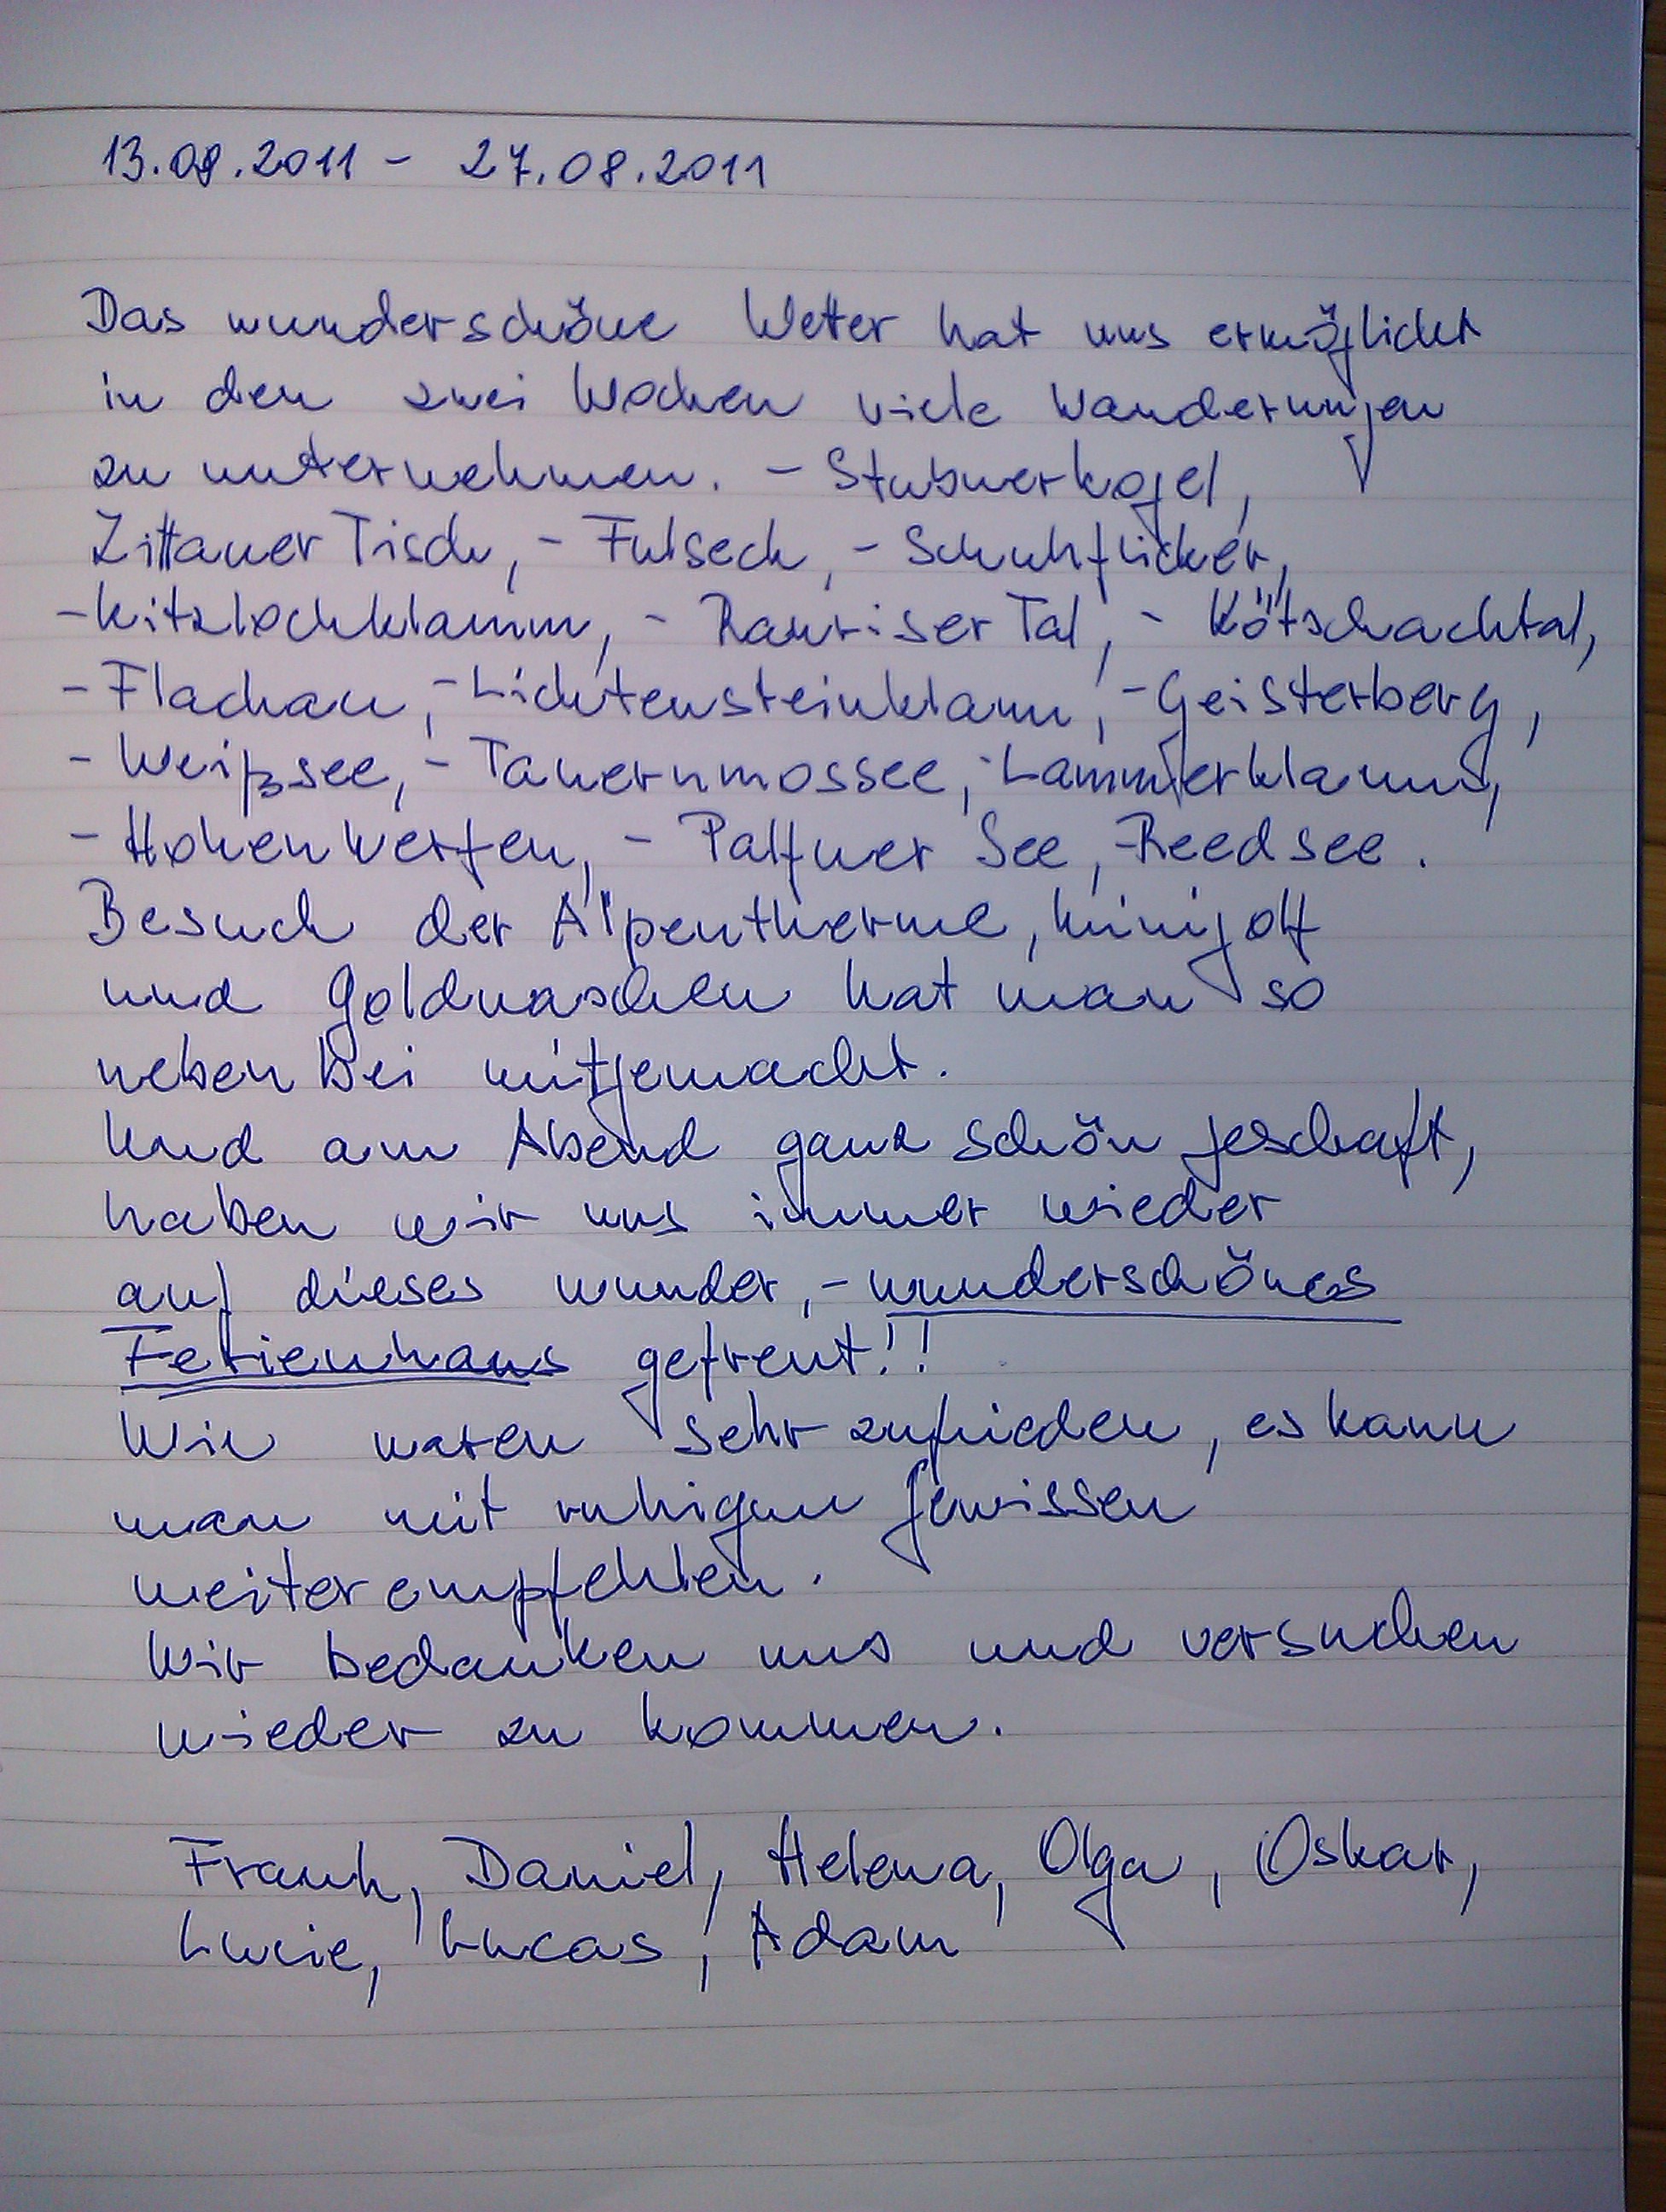 13.08.2011 - 27.08.2011
Das wunderschöne Wetter hat uns ermöglicht
in den zwei Wochen viele Wanderungen
zu unternehmen. - Stubnerkogel,
Zittauer Tisch, - Fulseck, - Schuhflicker,
- Kitzlochklamm, - Rauriser Tal, - Kötschachtal,
- Flachau, - Lichtensteinklamm, - Geisterberg,
- Weißsee, - Tauernmossee, - Lammerklamm,
- Hohenwerfen, - Palfner See, - Reedsee.
Besuch der Alpentherme, Minigolf
und Goldwaschen hat man so
nebenbei mitgemacht.
Und am Abend ganz schön geschaft,
haben wir uns immer wieder
auf dieses wunder, - wunderschönes
Ferienhaus gefreut!!
Wir waren sehr zufrieden, es kann
man mit ruhigem Gewissen
weiterempfehlen.
Wir bedanken uns und versuchen
wieder zu kommen.
Frank, Daniel, Helena, Olga, Oskar,
Lucie, Lucas, Adam